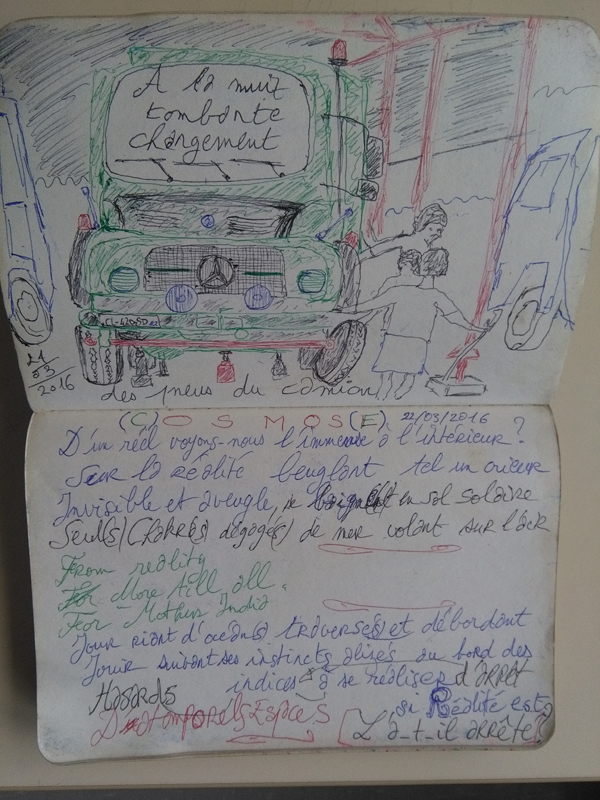 A la nuit
tombante
chargement
CL-420-SD
21
03
2016
des pneus du camion
(C) O S M OS (E) 22/03/2016
D'un réel voyons-nous l'immense à l'intérieur?
Sur la réalité beuglant tel un crieur
Invisible et aveugle, se en sol solaire
Seul(s) dégagé(s) de mer volant sur l'air
From reality
More till all.
For Mother India
Jour riant d'océan(s) traversé(s) et débordant
Jouir suivant ses instincts au bord des
indices à se réaliser d'arrêt
Hasards si Réalité est?
D temporels Espaces [L'a-t-il arrêté?]